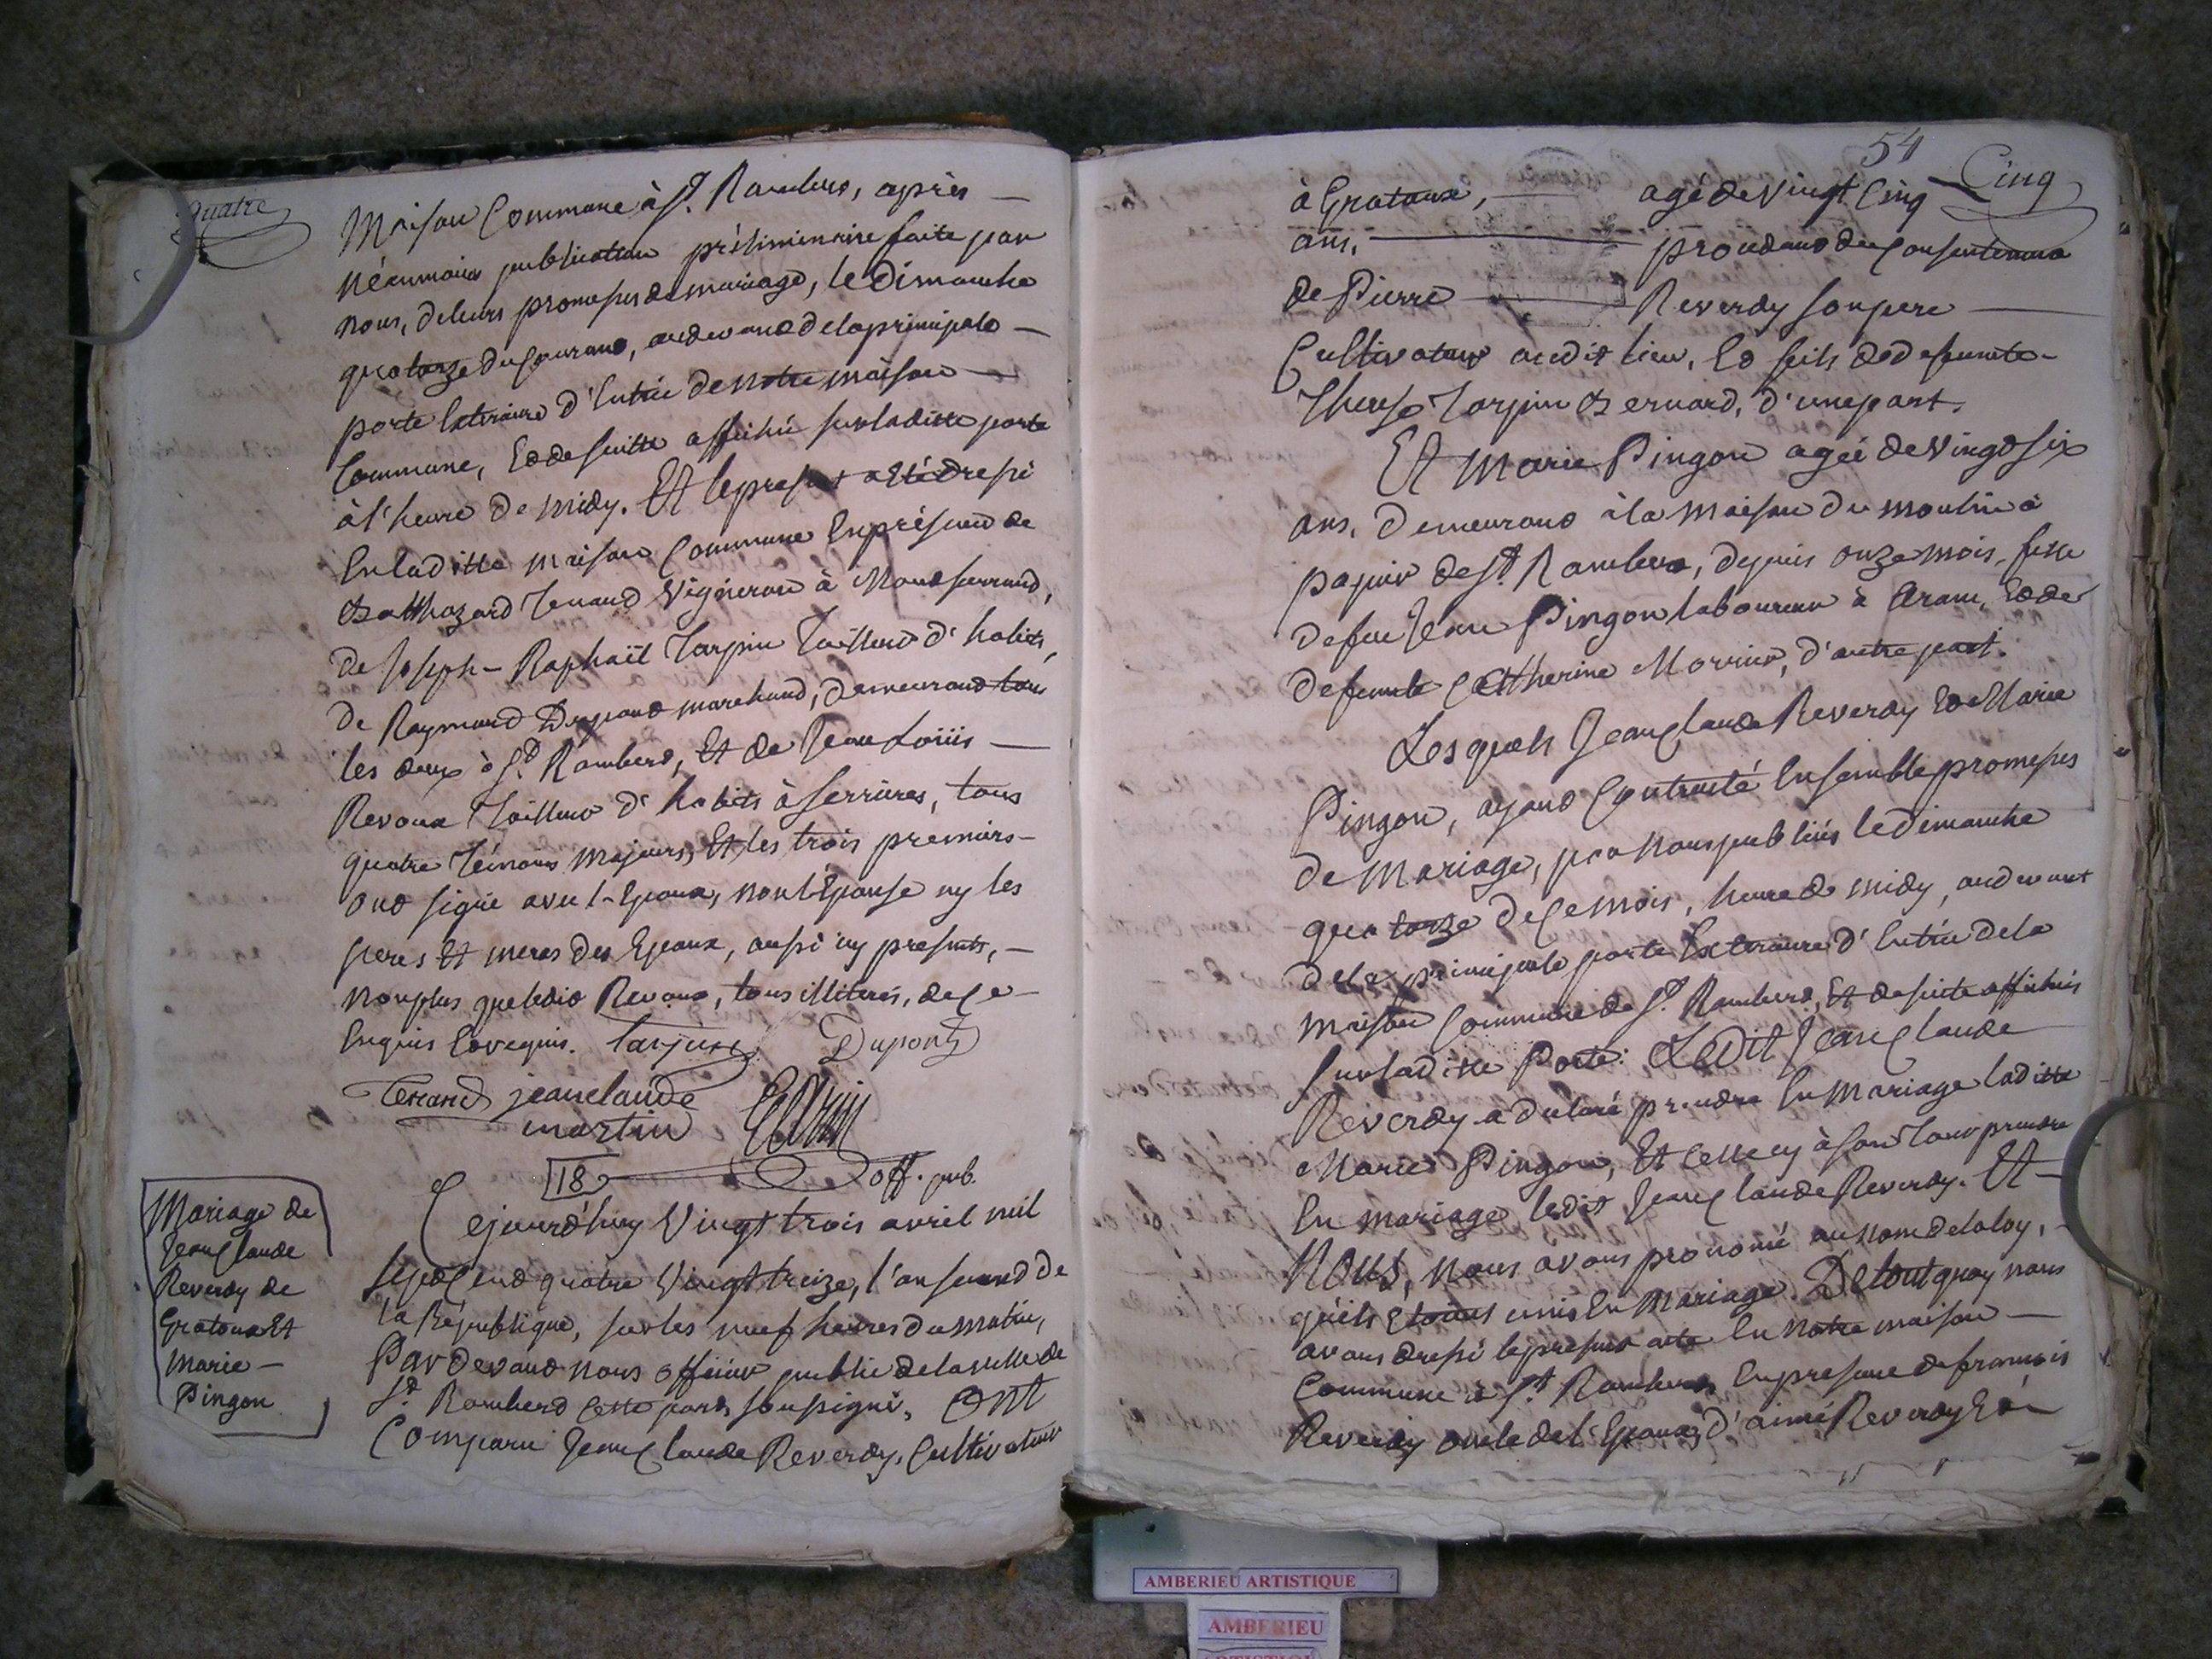 quatre
Maison Commune à St. Rambert, après —
nécessaire publication préliminaire faite par
nous, de leurs promesses de mariage, le Dimanche
quatorze du Courant, audevant de la principale —
porte Exterieure d'Entrée de notre maison —
Commune, Et de suitte affiché sur laditte porte
à l'heure de midy. Et le present a été dressé
En laditte maison Commune En présence de
Balthazard Tenand Vigneron à Montferrand,
de Joseph-Raphaël Tarpin Tailleur d'habits,
de Raymond Dupont marchand, demeurant tous
les deux à St. Rambert, Et de Jean Loüis —
Revoux Tailleur d'habits à Serrieres, tous
quatre Témoins majeurs, Et les trois premiers —
ont signé avec l'Epoux, non l'Epouse ny les
peres Et meres des Epoux, aussi cy presents, —
non plus que ledit Revoux, tous illiterés, de ce —
Enquis Et requis. Tarpin Dupont
Tenand jean claude
martin
18 off. pub.
Mariage de
Jean Claude
Reverdy de
Gratoux Et
Marie —
Pingon
Cejourd'huy Vingt trois avril mil
sept Cent quatre Vingt treize, l'an second de
la République, sur les neuf heures du matin,
Pardevant nous officier public de la ville de
St. Rambert Cette part, soussigné, Ont
Comparu Jean Claude Reverdy, Cultivateur
54
Cinq
à Gratoux, — agé de vingt Cinq
ans, — procedant du Consentement
de Pierre — Reverdy son pere —
Cultivateur audit lieu, Et fils de defunte —
Therese Tarpin Bernard, d'une part.
Et Marie Pingon agée de Vingt six
ans, Demeurant à la maison du moulin à
papier de St. Rambert, depuis onze mois, fille
de feu Jean Pingon laboureur à Aranc, Et de
defunte Catherine Morrier, d'autre part.
Lesquels Jean Claude Reverdy Et Marie
Pingon, ayant Contracté Ensemble promesses
de Mariage, par nous publiées le Dimanche
quatorze de Ce mois, heure de midy, audevant
de la principale porte Exterieure d'Entrée de la
maison Commune de St. Rambert, Et de suite affichées
sur laditte Porte: Ledit Jean Claude
Reverdy a declaré prendre En Mariage laditte
Marie Pingon, Et Celle cy à son tour prendre
En mariage ledit Jean Claude Reverdy. Et —
Nous, Nous avons prononcé au nom de la loy, —
qu'ils Etoient unis En Mariage. De tout quoy nous
avons dressé le present acte En notre maison —
Commune à St. Rambert, En presence de francois
Reverdy oncle de l'Epoux, d'aimé Reverdy Et
AMBERIEU ARTISTIQUE
AMBERIEU
ARTISTIQUE